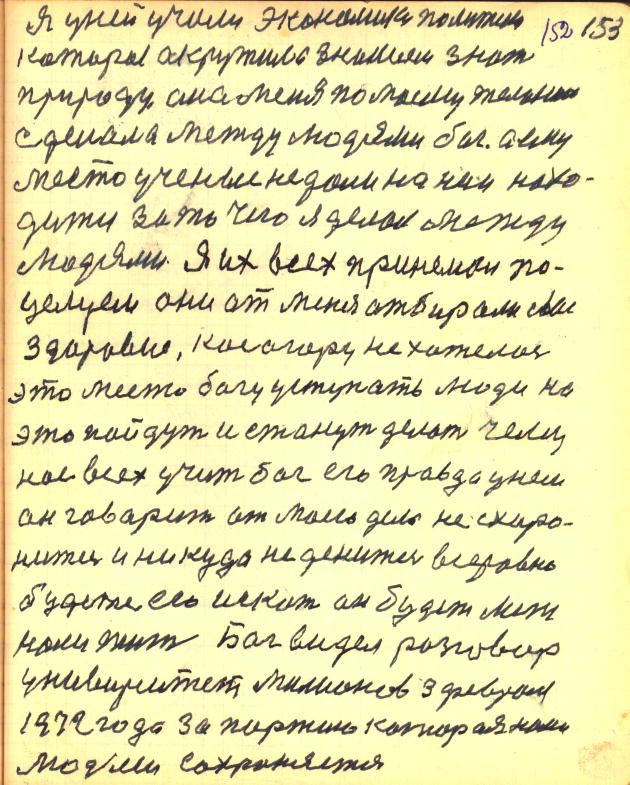 Я уней учили Экономика политика 152 153
которая акружила знанием знат
природу ана меня помоему желанию
сделала между людями бог. а ему
место ученые недали на ней нахо-
дится зато чего я делал между
людями Я их всех принемал по-
целуем они от меня атбирали свое
здоровие, Косогору не хотелос
это место богу уступать люди на
это пойдут и станут делат
нас всех учит бог его правда унем
он говорит от моего дела не схоро-
нитеся и никуда не денитеся всеровно
будете его искат он будет меж
нами жит Бог видел разговор
университет милионов 3 февраля
1979 года За партию которая нами
людми сохраняется